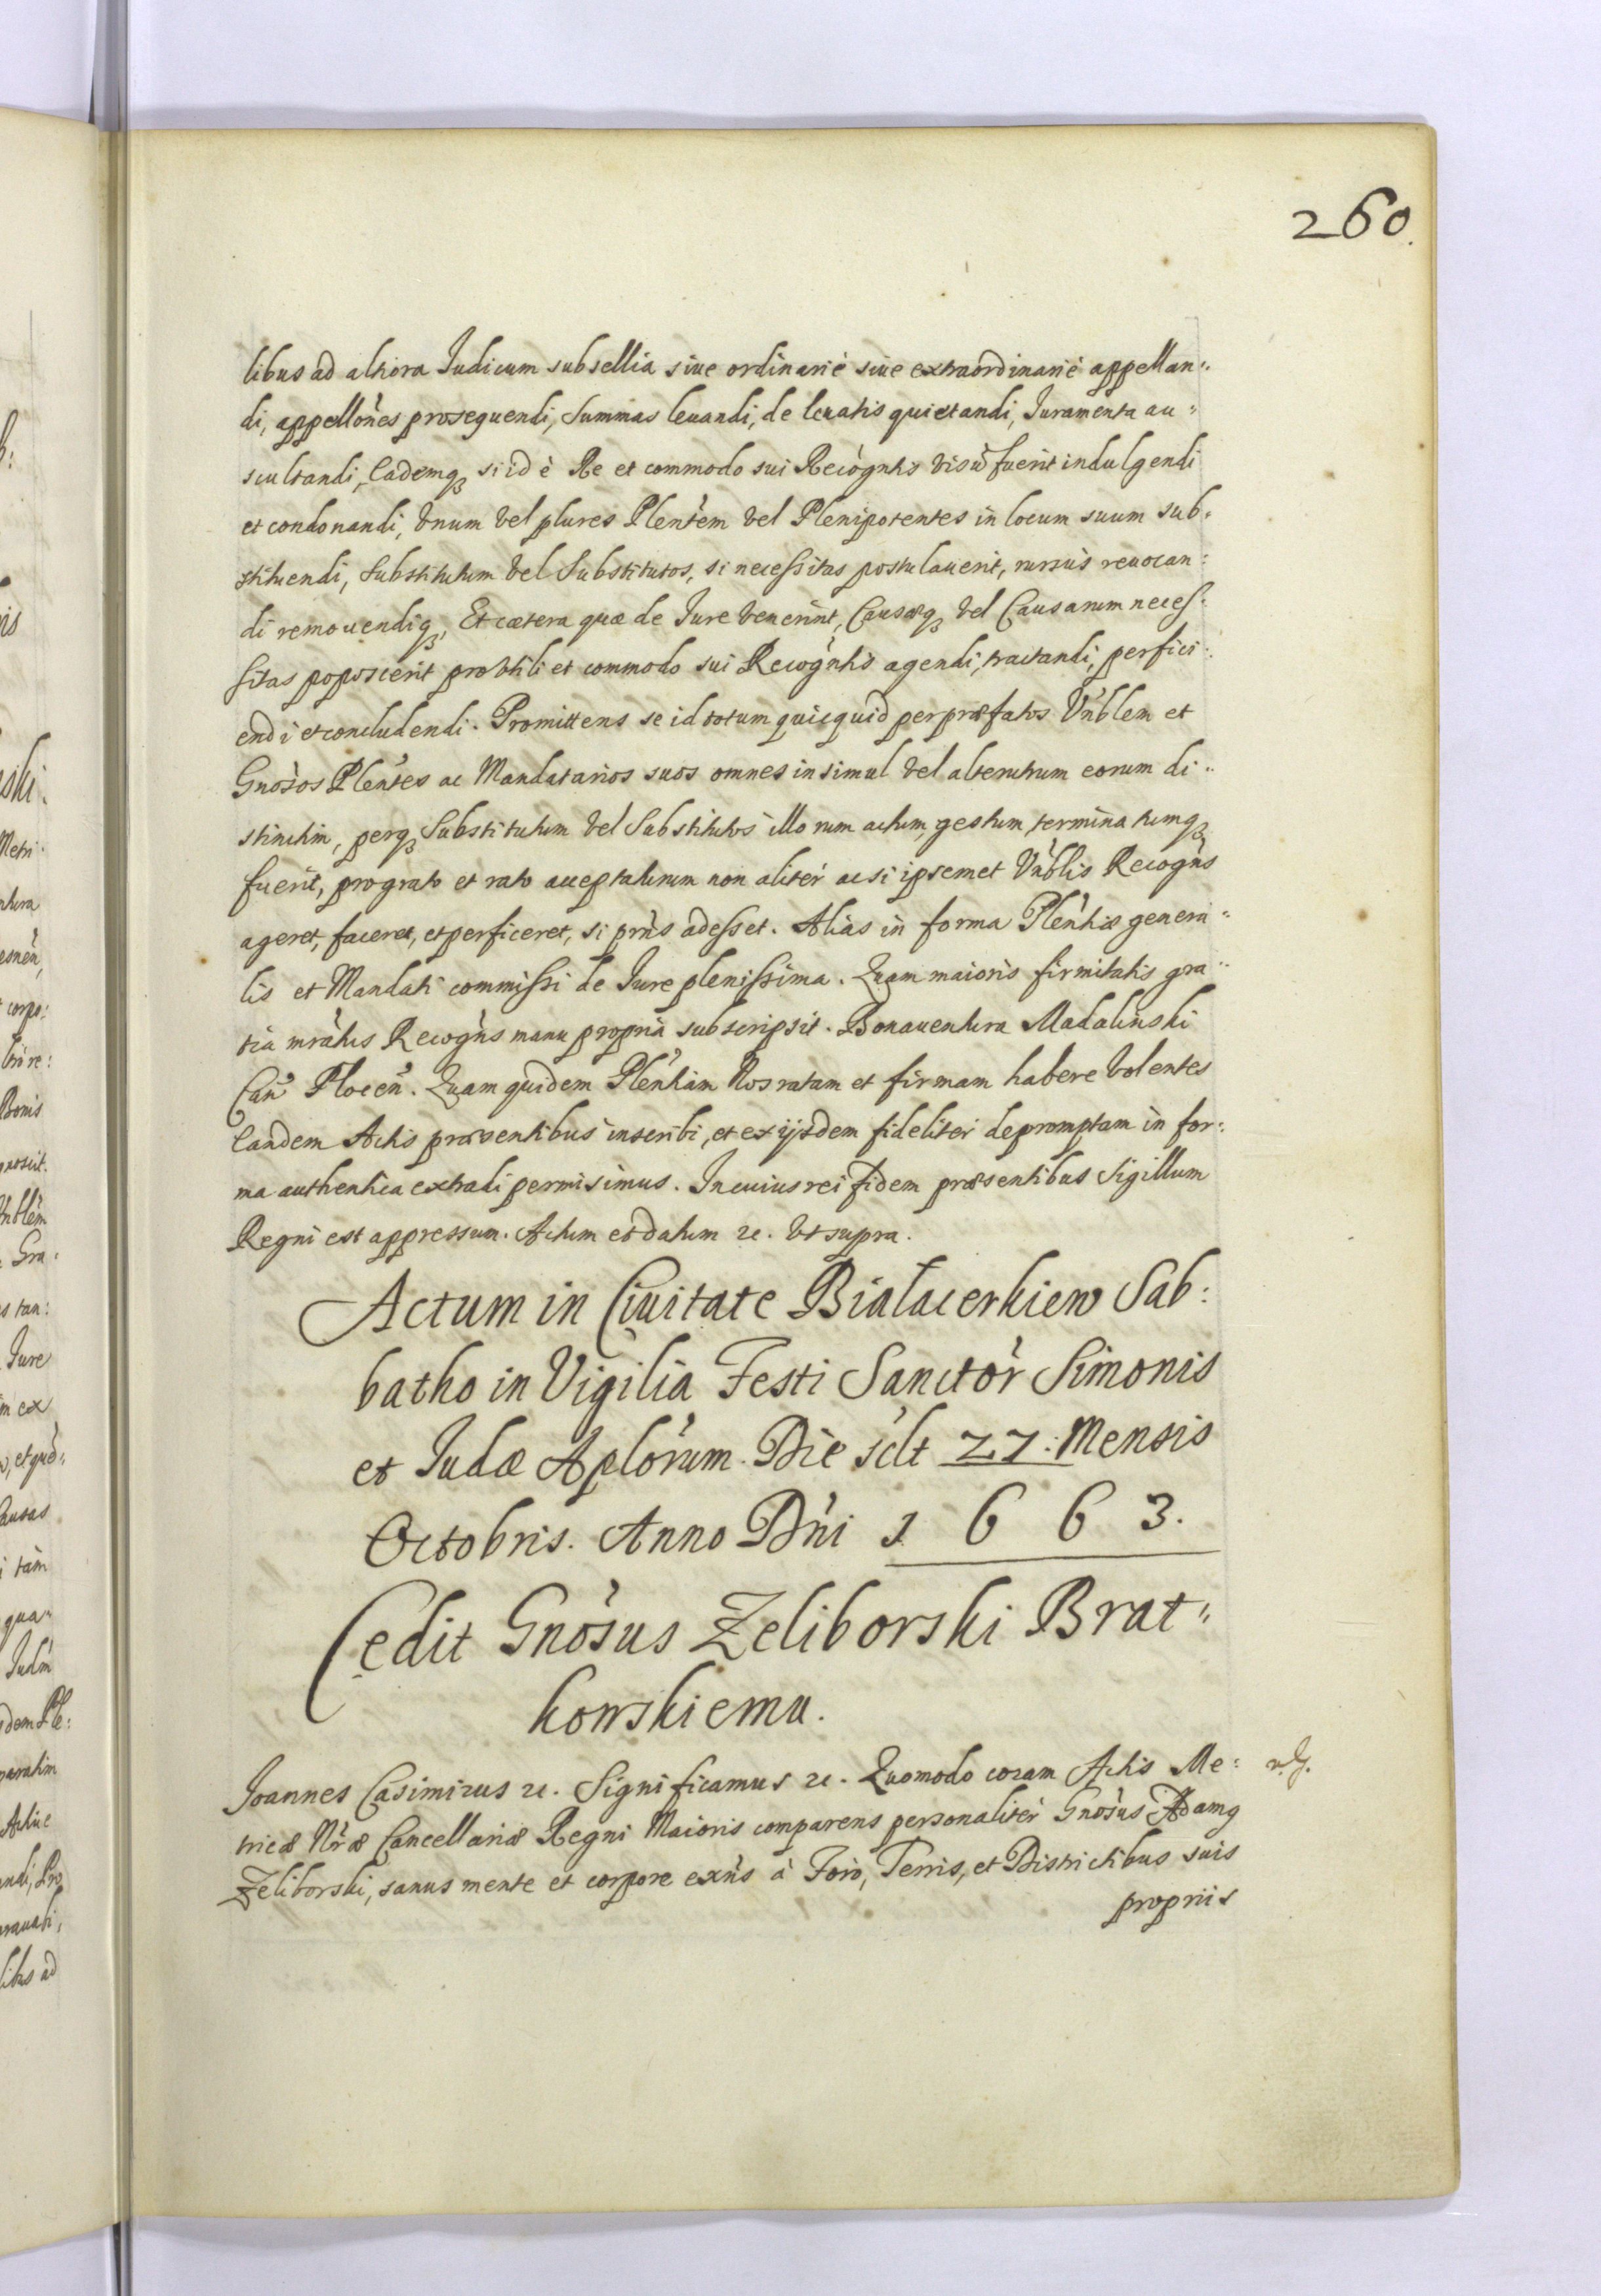 260.
libus ad altiora Judicum subsellia siue ordinariè siue extraordinariè appellan:
di, appellònes prosequendi, Summas leuandi, de leuatis quietandi, Juramenta au:
scultandi, Eademq3 si id è Re et commodo sui Recògntis visũ fuerit indulgendi
et condonandi, Vnum vel plures Plentèm vel Plenipotentes in locum suum sub:
stituendi, Substitutum vel Substitutos, si necessitas postulauerit, rursùs reuocan:
di remouendiq3, Et cætera quæ de Jure venerint, Causæq3 vel Causarum neces:
sitas poposcerit pro vtili et commodo sui Recogǹtis agendi, tractandi, perfici:
endi et concludendi. Promittens se id totum quicquid per præfatos Vr̀blem et
Gnòsos Pleñtes ac Mandatarios suos omnes insimul vel alterutrum eorum di:
stinctim, perq3 Substitutum vel Substitutos illorum actum, gestum, terminatumq3
fuerit, pro grato et rato accepturum non alitèr ac si ipsemet Vr̀blis Recogǹs
ageret, faceret, et perficeret, si prñs adesset. Aliàs in forma Plent̀iæ genera:
lis et Mandati commissi de Jure plenissima. Quam maioris firmitatis gra:
tia mràtus Recogǹs manu proprià subscripsit. Bonauentura Madalinski
Can̄ Plocen̄. Quam quidem Plenñam Nos ratam et firmam habere volentes
Eandem Actis præsentibus inscribi, et ex ijsdem fideliter depromptam in for:
ma authentica extradi permisimus. In cuius rei fidem præsentibus Sigillum
Regni est appressum. Actum et datum etc. Vt supra.
Actum in Ciuitate Białacerkiew Sab:
batho in Vigilia Festi Sanctòr Simonis
et Judæ Aplòrum. Die sclt 27. Mensis
Octobris. Anno Dñi 1663.
Cedit Gnòsus Zeliborski Brat:
kowskiemu.
Joannes Casimirus etc. Significamus etc. Quomodo coram Actis Me:
tricæ Nr̀æ Cancellariæ Regni Maioris comparens personalitèr Gnòsus Adamg
Zeliborski, sanus mente et corpore exǹs à Foro, Terris, et Districtibus suis
propriis